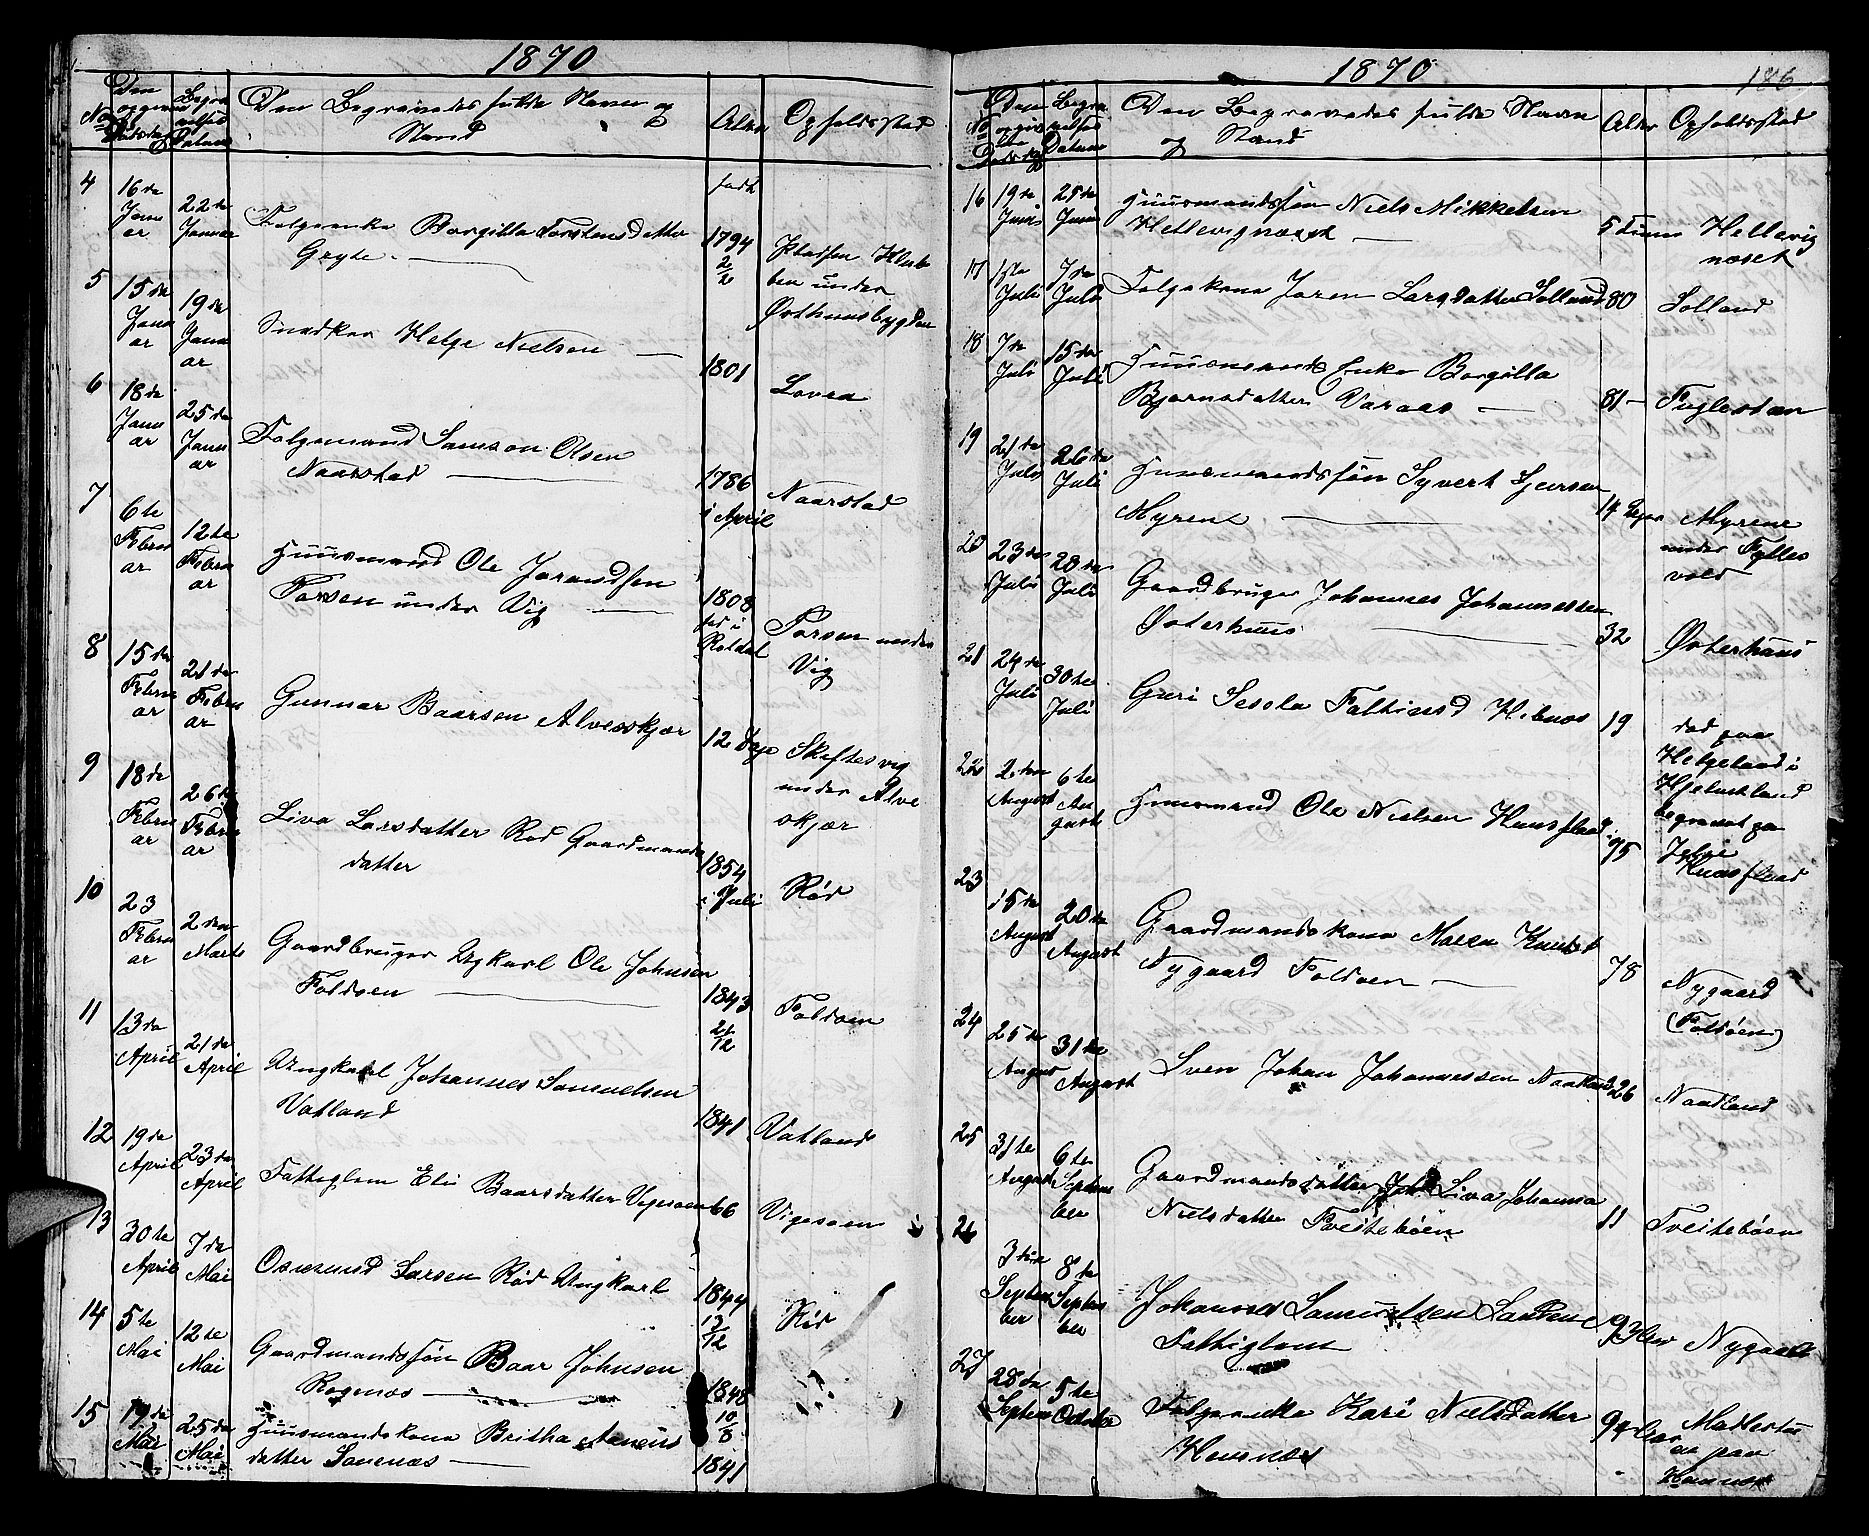 1870
No
Den
opgivne
Dødsdag
Begra
velses
Datum
Den Begravedes fulde Navn og
Stand
Alder
Opholdssted
4
16de
Janu
ar
22de
Januar
Folgeenke Borgilla Torstensdatter
Gryte
født
1794
2/2
Pladsen Klub
ben under
Østhuusbygden
5
15de
Janu
ar
19de
Janu
ar
Snedker Helge Nielsen
1801
Lovra
6
18de
Janu
ar
25de
Janu
ar
Folgemand Samson Olsen
Naarstad
1786
i April
Naarstad
7
6te
Febru
ar
12te
Febru
ar
Huusmand Ole Jorandsen
Torsen under Vig
1808
fød i
Roldal
Torsen under
Vig
8
15de
Febru
ar
21de
Febru
ar
Gunnar Baarsen Alveskjær
12 Dage
Skiftesvig
under Alve
skjær
9
18de
Febru
ar
26de
Febru
ar
Liva Larsdatter Rød Gaardmands
datter
1854
i Juli
Rød
10
23
Febru
ar
2den
Marts
Gaardbruger Ungkarl Ole Johnsen
Foldøen
1843
21/12
Foldøen
11
13de
April
21de
April
Ungkarl Johannes Samuelsen
Vatland
1841
Vatland
12
19de
April
23de
April
Fattiglem Eli Baarsdatter Vigesaen
66
Vigesaen
13
30te
April
7de
Mai
Osmund Larsen Rød Ungkarl
1844
13/12
Rød
14
5te
Mai
12te
Mai
Gaardmandssøn Baar Johnsen
Rogenæs
1848
10/8
15
19de
Mai
25de
Mai
Huusmandskone Britha Aanens
datter Sanenæs
1841
1870
186
No
Den
opgiv
ne
Dødsdag
Begra
velses
Datum
Den Begravedes fulde Navn
og Stand
Alder
Opholdssted
16
19de
Juni
25de
Juni
Huusmandssøn Niels Mikkelsen
Hettevignæset
5 Timer
Hettevig
næset
17
1ste
Juli
7de
Juli
Folgekone Joren Larsdatter Solland
80
Solland
18
7de
Juli
15de
Juli
Huusmands Enke Borgilla
Bjornsdatter Varaas
81
Fuglestøen
19
21de
Juli
26de
Juli
Huusmandssøn Syvert Sjursen
Myrene
14 Dage
Myrene
under Tylles
vold
20
23de
Juli
28de
Juli
Gaardbruger Johannes Johannessen
Østerhuus
32
Østerhuus
21
24de
Juli
30te
Juli
Guri Sesela Faltinsd Hebnes
19
død paa
Helgeland i
Hjelmeland
begravet paa
Jelsø
22
2den
August
6te
Au
gust
Huusmand Ole Nielsen Huusflaad
75
Huusflaad
23
15de
August
20de
August
Gaardmandskone Maren Knutsd
Nygaard Foldøen
78
Nygaard
(Foldøen)
24
25de
August
31te
August
Sven Johan Johannessen Naadland
26
Naadland
25
31te
August
6te
Septem
ber
Gaardmandsdatter Liva Johanna
Nielsdatter Tveitebøen
11
Tveitebøen
26
3die
Septem
ber
8de
Septem
ber
Johannes Samuelsen
Fattiglem
93
Nygaard
27
28de
Septem
5te
October
Folgeenke Kari Nielsdatter
Hemnæs
94
paa
Hemnæs